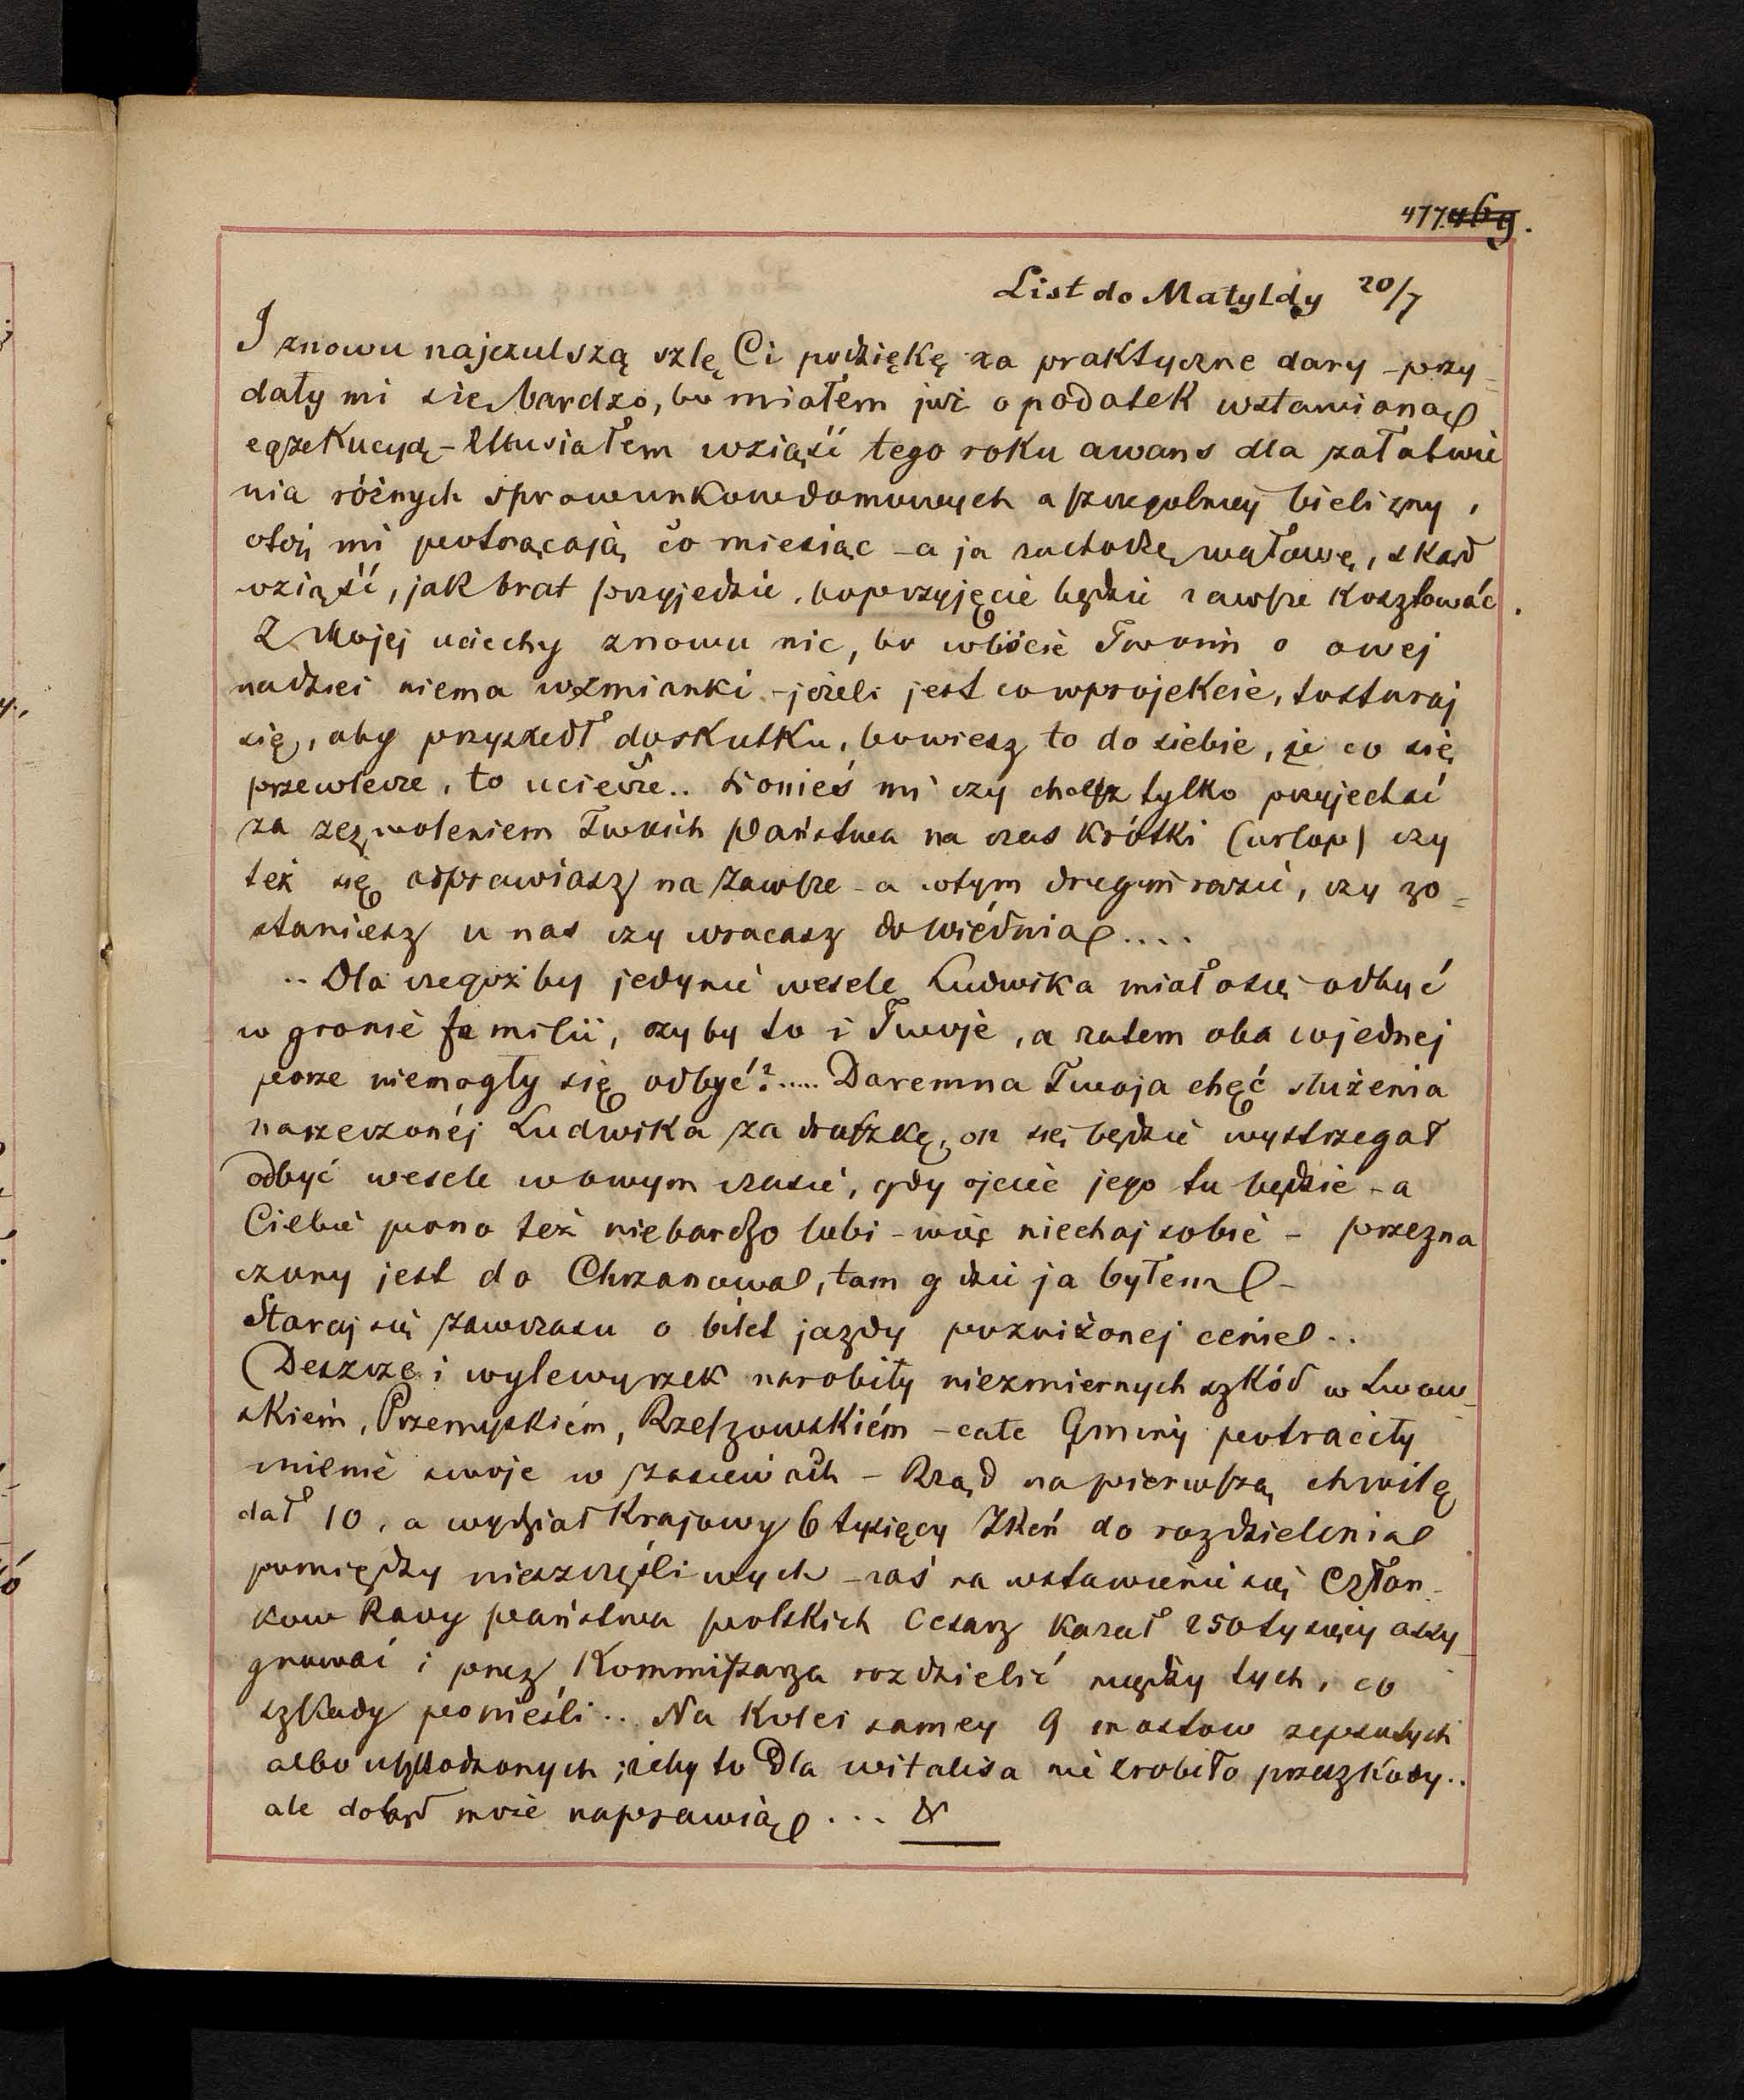 477. 469.
List do Matyldy 20/7
I znowu najczulszą szlę Ci podziękę za praktyczne dary - przy=
dały mi się bardzo, bo miałem już o podatek wstawioną
egzekucyą - Musiałem wziąść tego roku awans dla załatwie
nia różnych sprawunkow domowych a szczegolniej bielizny,
otoż mi potrącają co miesiąc - a ja zachodzę w głowę, skąd
wziąść, jak brat przyjedzie, bo przyjęcie będzie zawsze kosztować.
Z Mojej uciechy znowu nic, bo w liście Twoim o owej
nadziei niema wzmianki - jeżeli jest co w projekcie, to staraj
się, aby przyszedł do skutku, bo wiesz to do siebie, że co się
przewlecze, to uciecze.. Donieś mi czy chcesz tylko przyjechać
za zezwoleniem Twoich Państwa na czas krótki (urlop) czy
też się odprawiasz na zawsze - a w tym drugim razie, czy zo=
staniesz u nas czy wracasz do Wiédnia....
.. Dla czegoż by jedynie wesele Ludwika miało się odbyć
w gronie familii, czyby to i Twoje, a zatem oba w jednej
porze niemogły się odbyć?..... Daremna Twoja chęć służenia
narzeczonéj Ludwika za drużkę, on się będzie wystrzegał
odbyć wesele w owym czasie, gdy ojciec jego tu będzie - a
Ciebie pono też niebardzo lubi - więc niechaj sobie - przezna
czony jest do Chrzanowa, tam gdzie ja byłem -
Staraj się zawczasu o bilet jazdy po zniżonej cenie..
Deszcze i wylewy rzek narobiły niezmiernych szkód w Lwow_
skiém, Przemyskiém, Rzeszowskiém - całe Gminy potraciły
mienie swoje w zasiewach - Rząd na pierwszą chwilę
dał 10, a wydział Krajowy 6 tysięcy ZReń do rozdzielenia
pomiędzy nieszczęśliwych - zaś na wstawienie się Człon_
kow Rady państwa polskich Cesarz kazał 250 tysięcy assy_
gnować i przez Kommissarza rozdzielić między tych, co
szkody ponieśli.. Na Kolei samej 9 mostow zepsutych
albo uszkodzonych; żeby to Dla Witalisa nie zrobiło przeszkody..
ale dotąd może naprawią... &